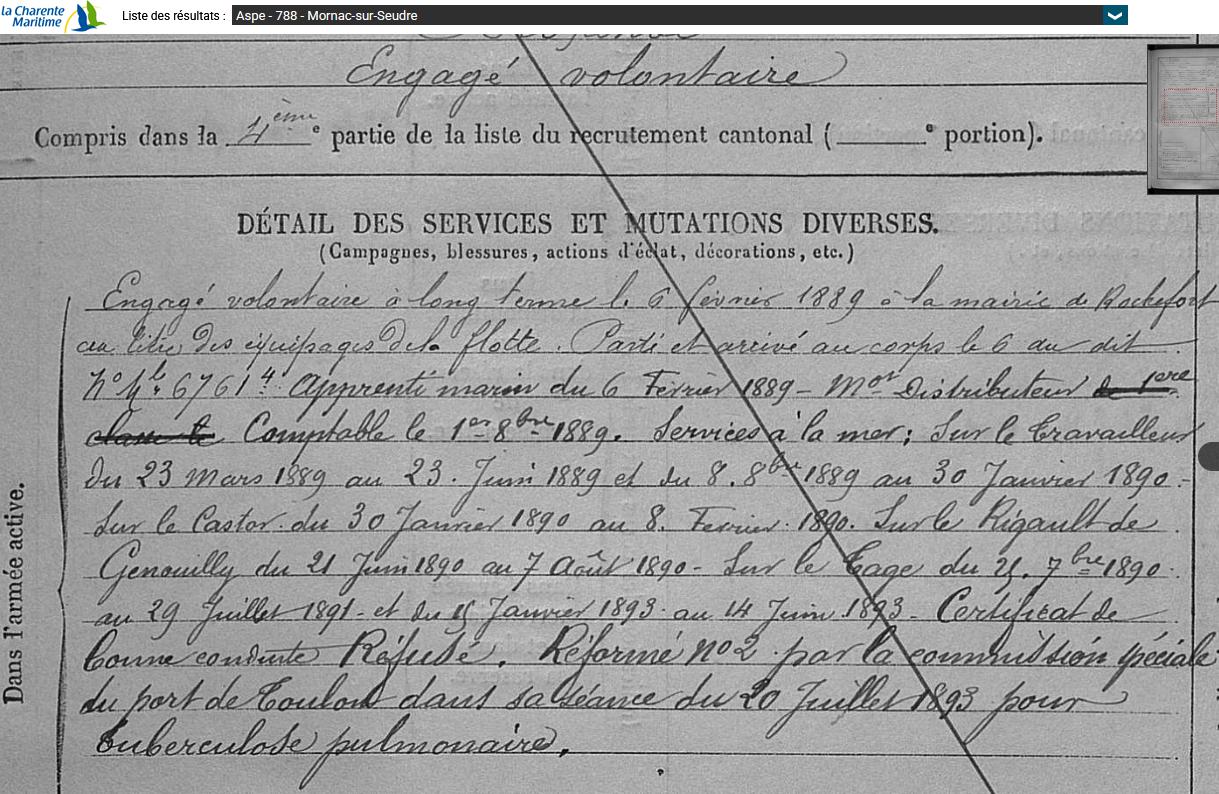 la Charente
Maritime
Liste des résultats : Aspe - 788 - Mornac-sur-Seudre
Engagé volontaire
Compris dans la 4ème e partie de la liste du recrutement cantonal ( e portion).
DÉTAIL DES SERVICES ET MUTATIONS DIVERSES.
(Campagnes, blessures, actions d'éclat, décorations, etc.)
Dans l'armée active.
Engagé volontaire à long terme le 6 février 1889 à la mairie de Rochefort
au titre des équipages de la flotte. Parti et arrivé au corps le 6 du dit.
N° Mle 6761 4. Apprenti marin du 6 Février 1889 - Mot Distributeur de 1ere
classe le Comptable le 1er 8bre 1889. Services à la mer; Sur le Travailleur
du 23 Mars 1889 au 23. Juin 1889 et du 8. 8bre 1889 au 30 Janvier 1890.-
Sur le Castor du 30 Janvier 1890 au 8. Fevrier. 1890. Sur le Rigault de
Genouilly du 21 Juin 1890 au 7 Août 1890 - Sur le Tage du 7bre 1890.
au 29 Juillet 1891 - et du Janvier 1893 au 14 Juin 1893 - Certificat de
bonne conduite Réfusé. Réformé n° 2 par la commission spéciale
du port de Toulon dans sa séance du 20 Juillet 1893 pour
tuberculose pulmonaire.